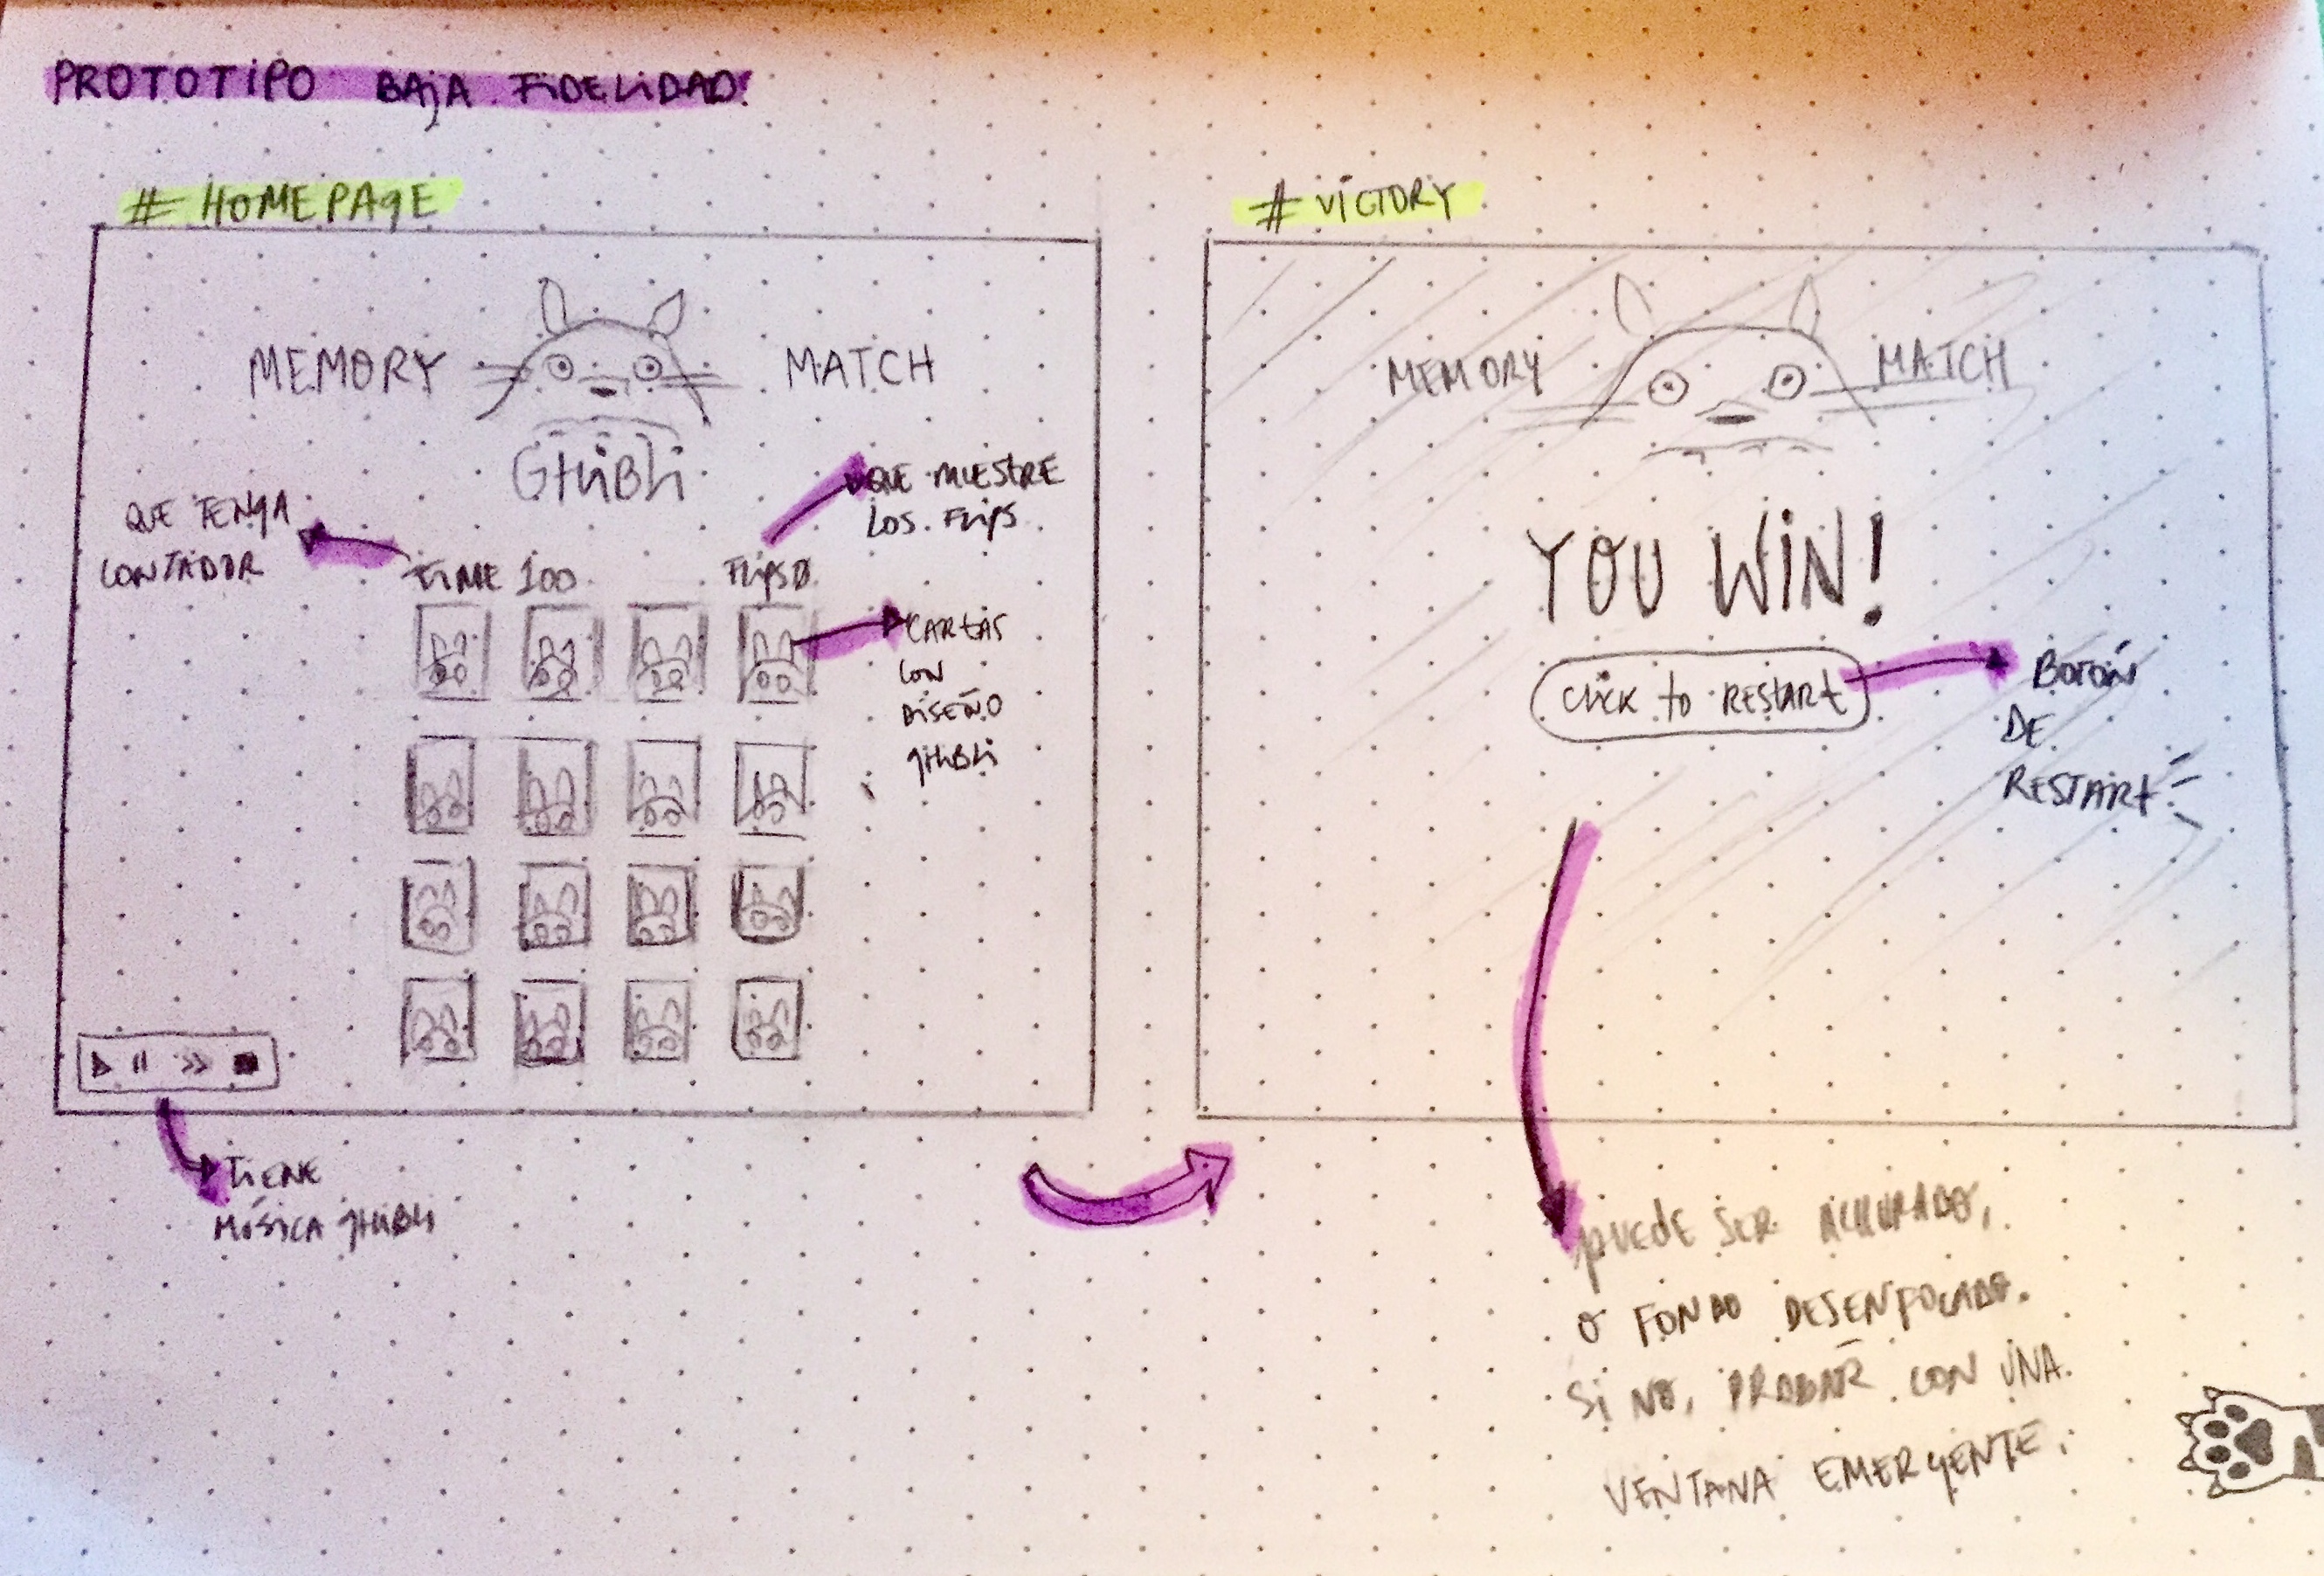 PROTOTIPO BAJA FIDELIDAD
# HOMEPAGE
MEMORY MATCH
GHIBLI
QUE TENGA
CONTADOR
QUE MUESTRE
LOS FLIPS
TIME 100 FLIPS 0
CARTAS
CON
DISEÑO
GHIBLI
TIENE
MÚSICA GHIBLI
# VICTORY
MEMORY MATCH
YOU WIN!
CLICK to RESTART
BOTÓN
DE
RESTART
PUEDE SER
O FONDO DESENFOCADO.
SI NO, PROBAR CON UNA
VENTANA EMERGENTE.